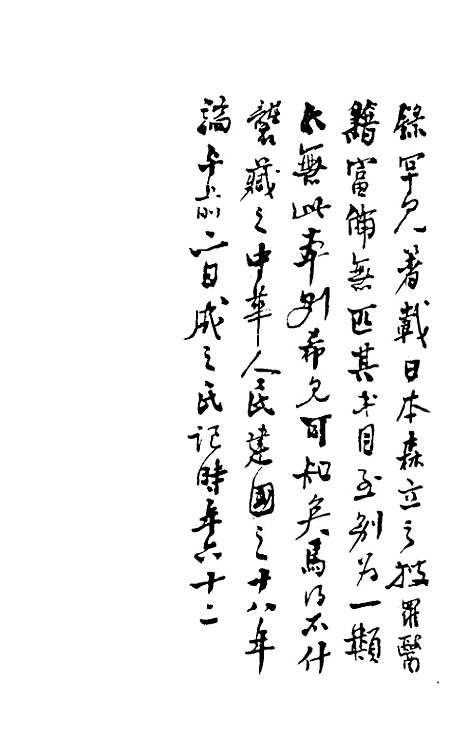 錄罕見著載日本森立之披羅醫
籍富備無匹其書目至別為一類
亦無此車則希見可知矣焉得不什
襲藏之中華人民建國之十八年
端午前二日成之氏記時年六十二